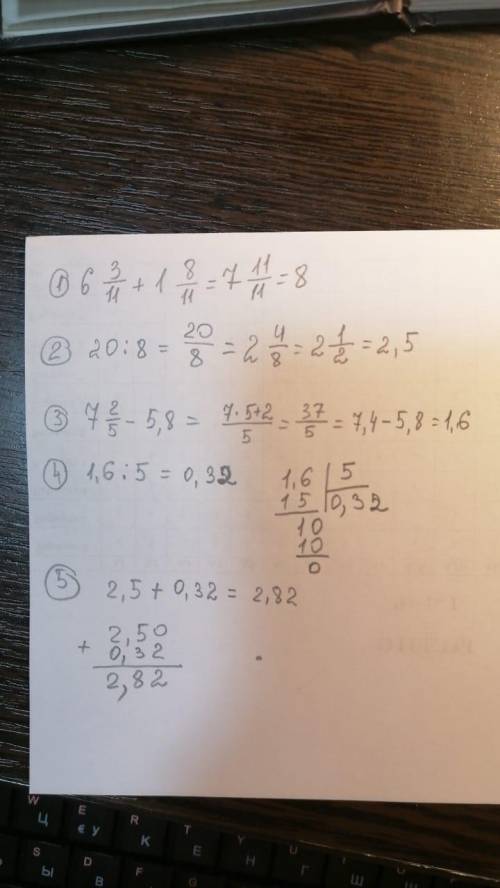 ① 6 3/11 + 1 8/11 = 7 11/11 = 8
② 20 : 8 = 20/8 = 2 4/8 = 2 1/2 = 2,5
③ 7 2/5 - 5,8 = 7·5+2/5 = 37/5 = 7,4 - 5,8 = 1,6
④ 1,6 : 5 = 0,32
1,6 | 5
15 | 0,32
10
10
0
⑤ 2,5 + 0,32 = 2,82
+ 2,50
0,32
2,82
W Ц
E € У
R К
T Е
Y Н
U Г
S Ы
D В
F А